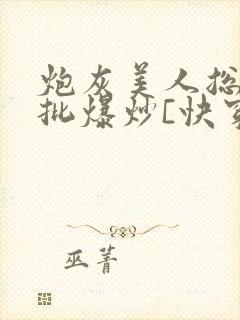 炮灰美人总
批爆炒[快穿
巫菁